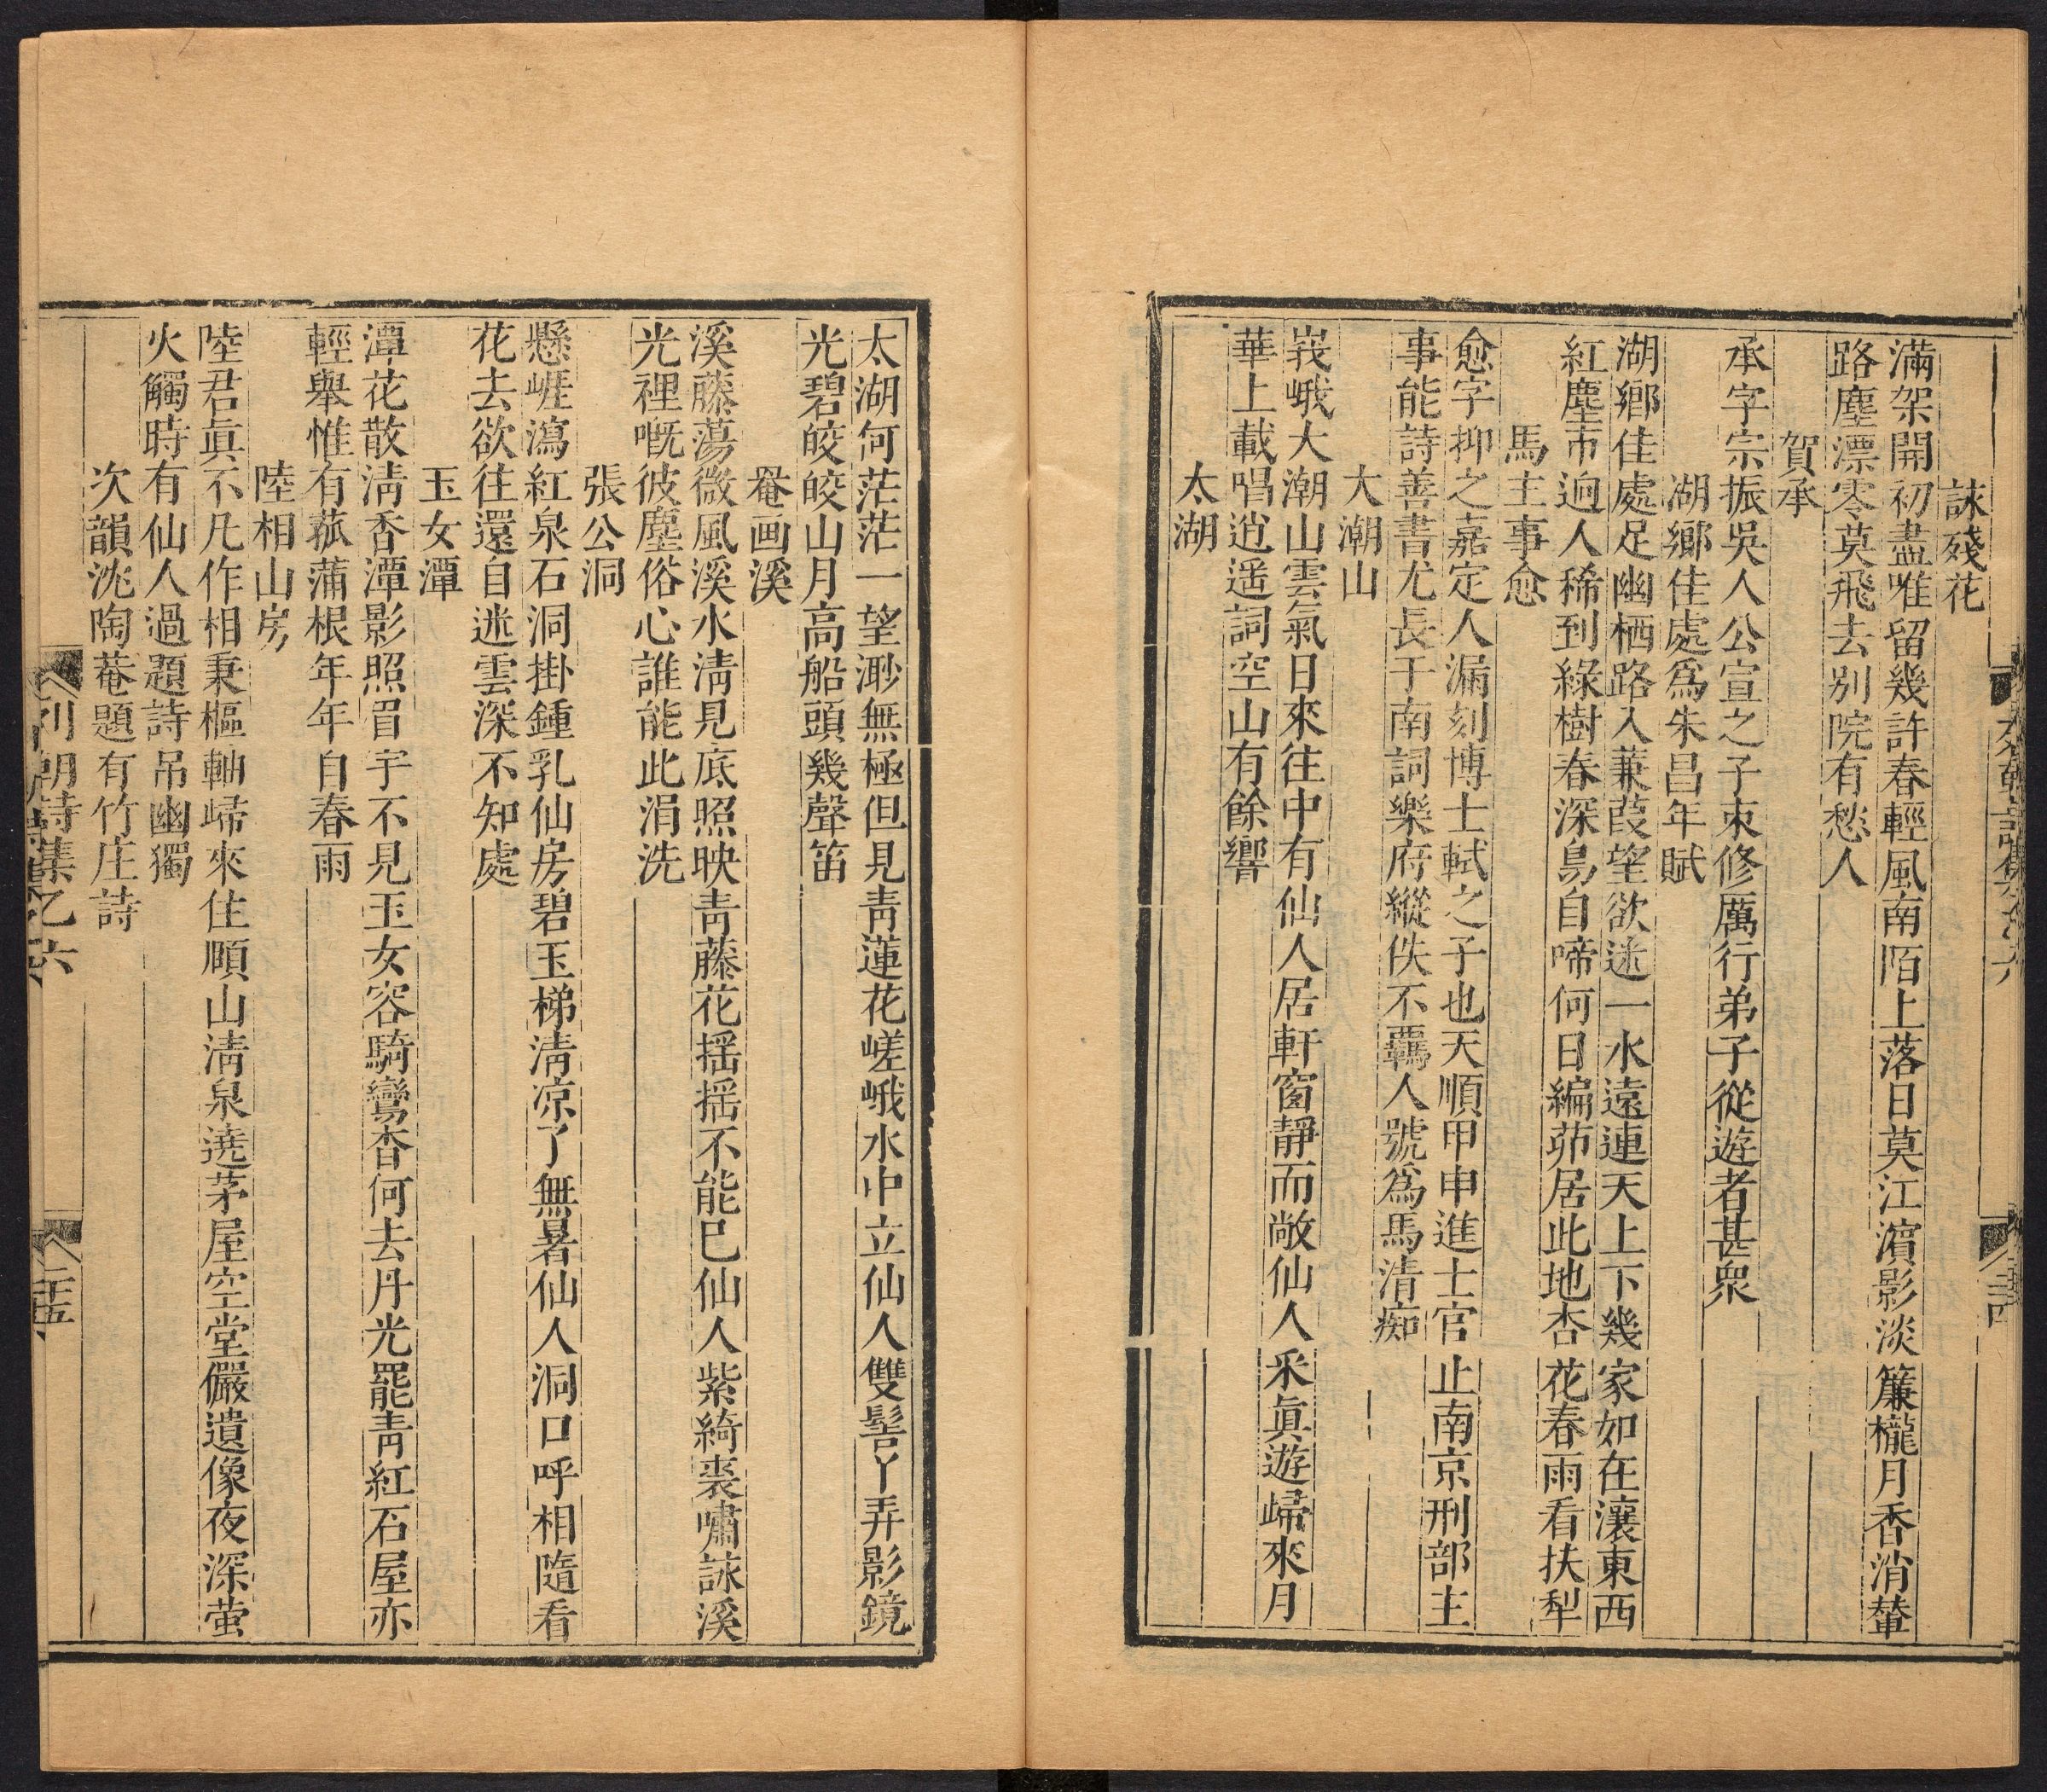 詠殘花
滿架開初盡唯留幾許春輕風南陌上落日莫江濵影淡簾櫳月香消輦
路塵漂零莫飛去别院有愁人
賀承
承字宗振吳人公宣之子束修厲行弟子從遊者甚衆
湖鄉佳處爲朱昌年賦
湖鄉佳處足幽栖路入蒹葭望欲迷一水遠連天上下幾家如在瀼東西
紅塵市逈人稀到綠樹春深鳥自啼何日編茆居此地杏花春雨看扶犁
馬主事愈
愈字抑之嘉定人漏刻博士軾之子也天順甲申進士官止南京刑部主
事能詩善書尤長于南詞樂府縱佚不覊人號爲馬清痴
大潮山
峩峨大潮山雲氣日來往中有仙人居軒窗靜而敞仙人釆眞遊歸來月
華上載唱逍遥詞空山有餘響
太湖
太湖何茫茫一望渺無極但見靑蓮花嵯峨水中立仙人雙髻丫弄影鏡
光碧皎皎山月高船頭幾聲笛
罨画溪
溪藤蕩微風溪水淸見底照映靑藤花揺揺不能已仙人紫綺裘嘯詠溪
光裡嘅彼塵俗心誰能此涓洗
張公洞
懸崕瀉紅泉石洞掛鍾乳仙房碧玉梯淸凉了無暑仙人洞口呼相隨看
花去欲往還自迷雲深不知處
玉女潭
潭花散淸香潭影照眉宇不見玉女容騎鸞杳何去丹光罷靑紅石屋亦
輕舉惟有菰蒲根年年自春雨
陸相山房
陸君眞不凡作相秉樞軸歸來住頤山淸泉遶茅屋空堂儼遺像夜深萤
火觸時有仙人過題詩吊幽獨
次韻沈陶菴題有竹庄詩
列朝詩集乙六
二十五